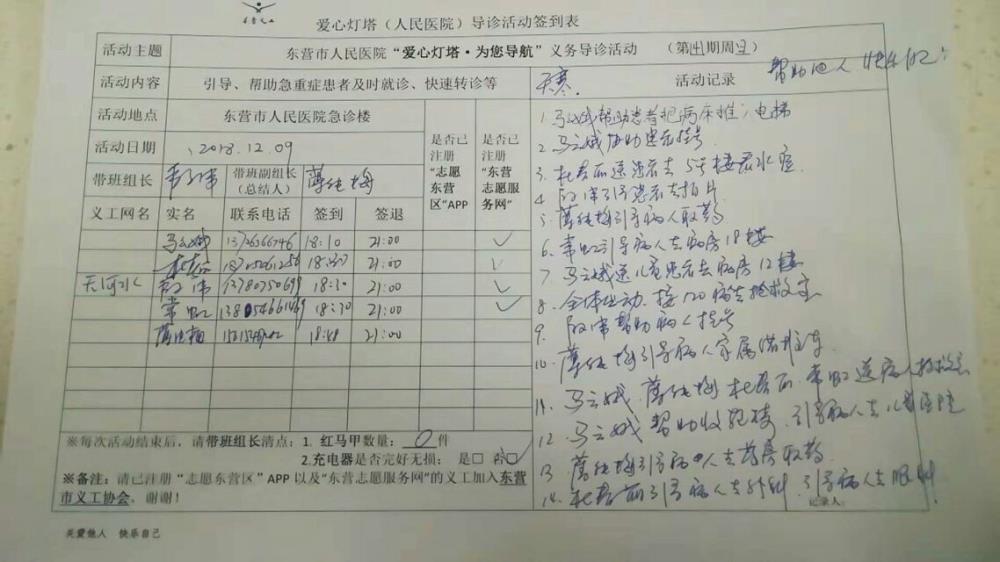 爱心灯塔（人民医院）导诊活动签到表
活动主题 东营市人民医院“爱心灯塔·为您导航”义务导诊活动 （第 期周日）
活动内容 引导、帮助急重症患者及时就诊、快速转诊等 活动记录
帮助他人 快乐自己
活动地点 东营市人民医院急诊楼 是否已注册“志愿东营区”APP 是否已注册“东营志愿服务网”
活动日期 2018.12.09
带班组长 带班副组长（总结人） 薛纯梅
义工网名 实名 联系电话 签到 签退
马云娥 18:10 21:00 ✓
21:00 ✓
天河水 伟 13780750699 18:20 21:00 ✓
常虹 18:30 21:00 ✓
18:48 21:00
1. 马云娥帮助患者把病床推 电梯
2. 马云娥协助患者挂号
3. 送患者去5号楼
4. 伟引导患者去拍片
5. 薛纯梅引导病人取药
6. 常虹引导病人去病房18楼
7. 马云娥送儿童患者去病房12楼
8. 全体出动.接120病号去抢救室
9. 伟帮助病人挂号
10. 薛纯梅引导病人家属借推车
11. 马云娥.薛纯梅 常虹送病人
12. 马云娥帮助收轮椅.引导病人去儿童医院
13. 薛纯梅引导病人去药房取药
14. 引导病人去外科.引导病人去眼科.
※每次活动结束后，请带班组长清点：1. 红马甲数量： 0 件
2.充电器是否完好无损： 是□ 否□✓
※备注：请已注册“志愿东营区”APP以及“东营志愿服务网”的义工加入东营
市义工协会，谢谢！
记录人：
关爱他人 快乐自己